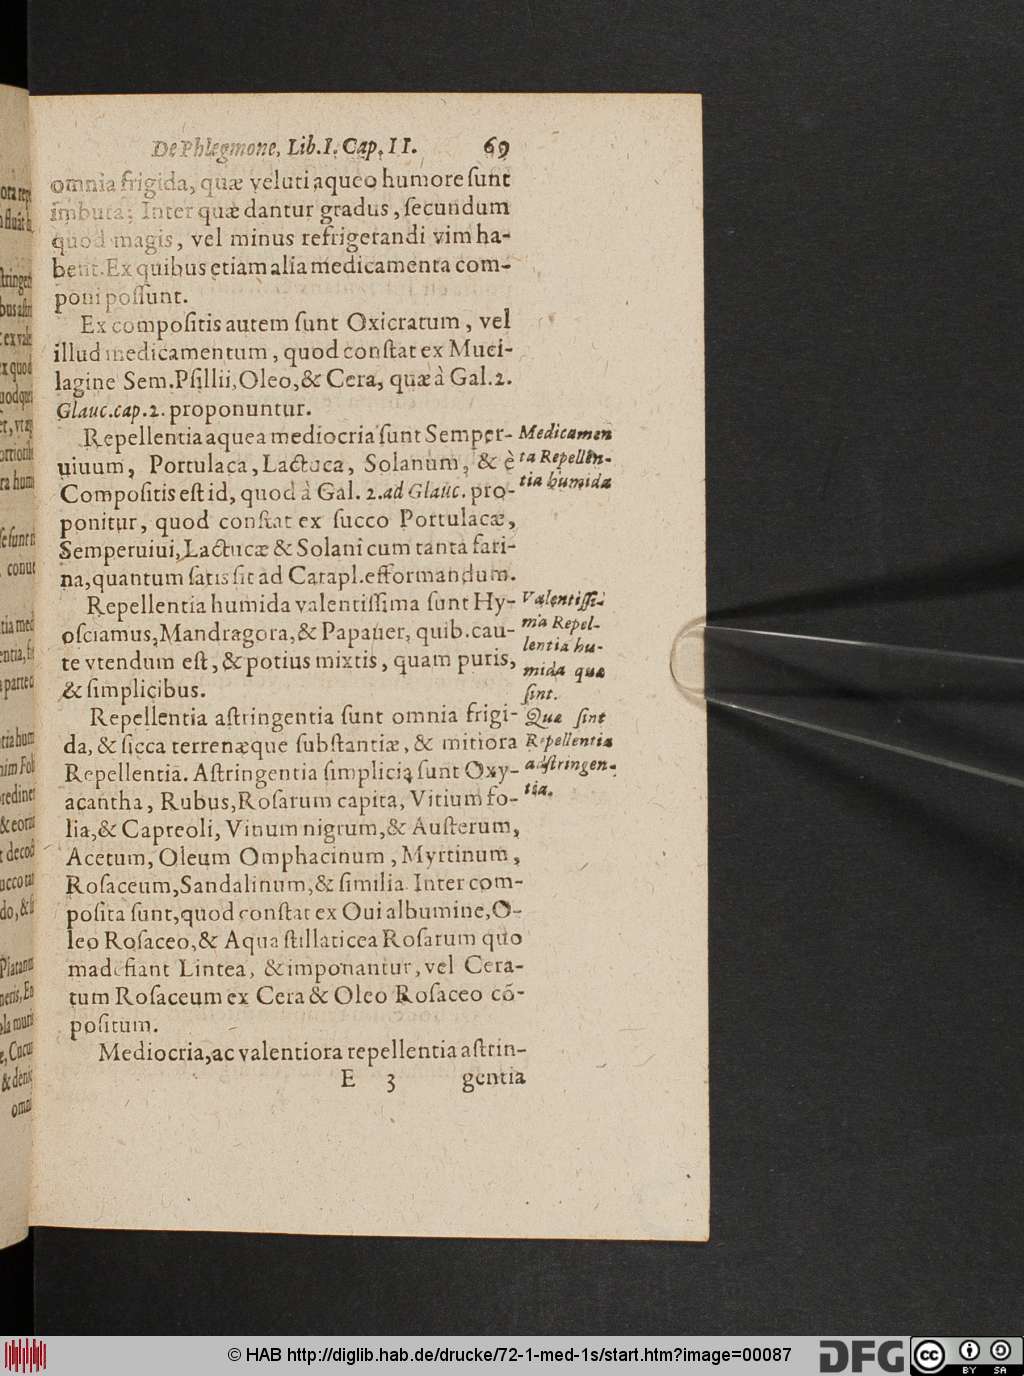 De Phlegmone, Lib.I. Cap. II. 69
omnia frigida, quæ veluti aqueo humore ſunt
imbuta; Inter quæ dantur gradus, ſecundum
quod magis, vel minus refrigerandi vim ha-
bent. Ex quibus etiam alia medicamenta com-
poni poſſunt.
Ex compoſitis autem ſunt Oxicratum, vel
illud medicamentum, quod conſtat ex Muci-
lagine Sem. Pſillii, Oleo, & Cera, quæ à Gal. 2.
Glauc. cap. 2. proponuntur.
Repellentia aquea mediocria ſunt Semper-
uiuum, Portulaca, Lactuca, Solanum, & è
Compoſitis eſt id, quod à Gal. 2. ad Glauc. pro-
ponitur, quod conſtat ex ſucco Portulacæ,
Semperuiui, Lactucæ & Solani cum tanta fari-
na, quantum ſatis ſit ad Catapl. efformandum.
Medicamen
ta Repellen-
tia humida
Repellentia humida valentiſſima ſunt Hy-
oſciamus, Mandragora, & Papauer, quib. cau-
te vtendum eſt, & potius mixtis, quam puris,
& ſimplicibus.
Valentiſſi-
ma Repel-
lentia hu-
mida quæ
ſint.
Repellentia aſtringentia ſunt omnia frigi-
da, & ſicca terrenæque ſubſtantiæ, & mitiora
Repellentia. Aſtringentia ſimplicia ſunt Oxy-
acantha, Rubus, Roſarum capita, Vitium fo-
lia, & Capreoli, Vinum nigrum, & Auſterum,
Acetum, Oleum Omphacinum, Myrtinum,
Roſaceum, Sandalinum, & ſimilia. Inter com-
poſita ſunt, quod conſtat ex Oui albumine, O-
leo Roſaceo, & Aqua ſtillaticea Roſarum quo
madefiant Lintea, & imponantur, vel Cera-
tum Roſaceum ex Cera & Oleo Roſaceo cō-
poſitum.
Quæ ſint
Repellentia
adſtringen-
tia.
Mediocria, ac valentiora repellentia aſtrin-
E 3 gentia
© HAB http://diglib.hab.de/drucke/72-1-med-1s/start.htm?image=00087
DFG
cc BY SA